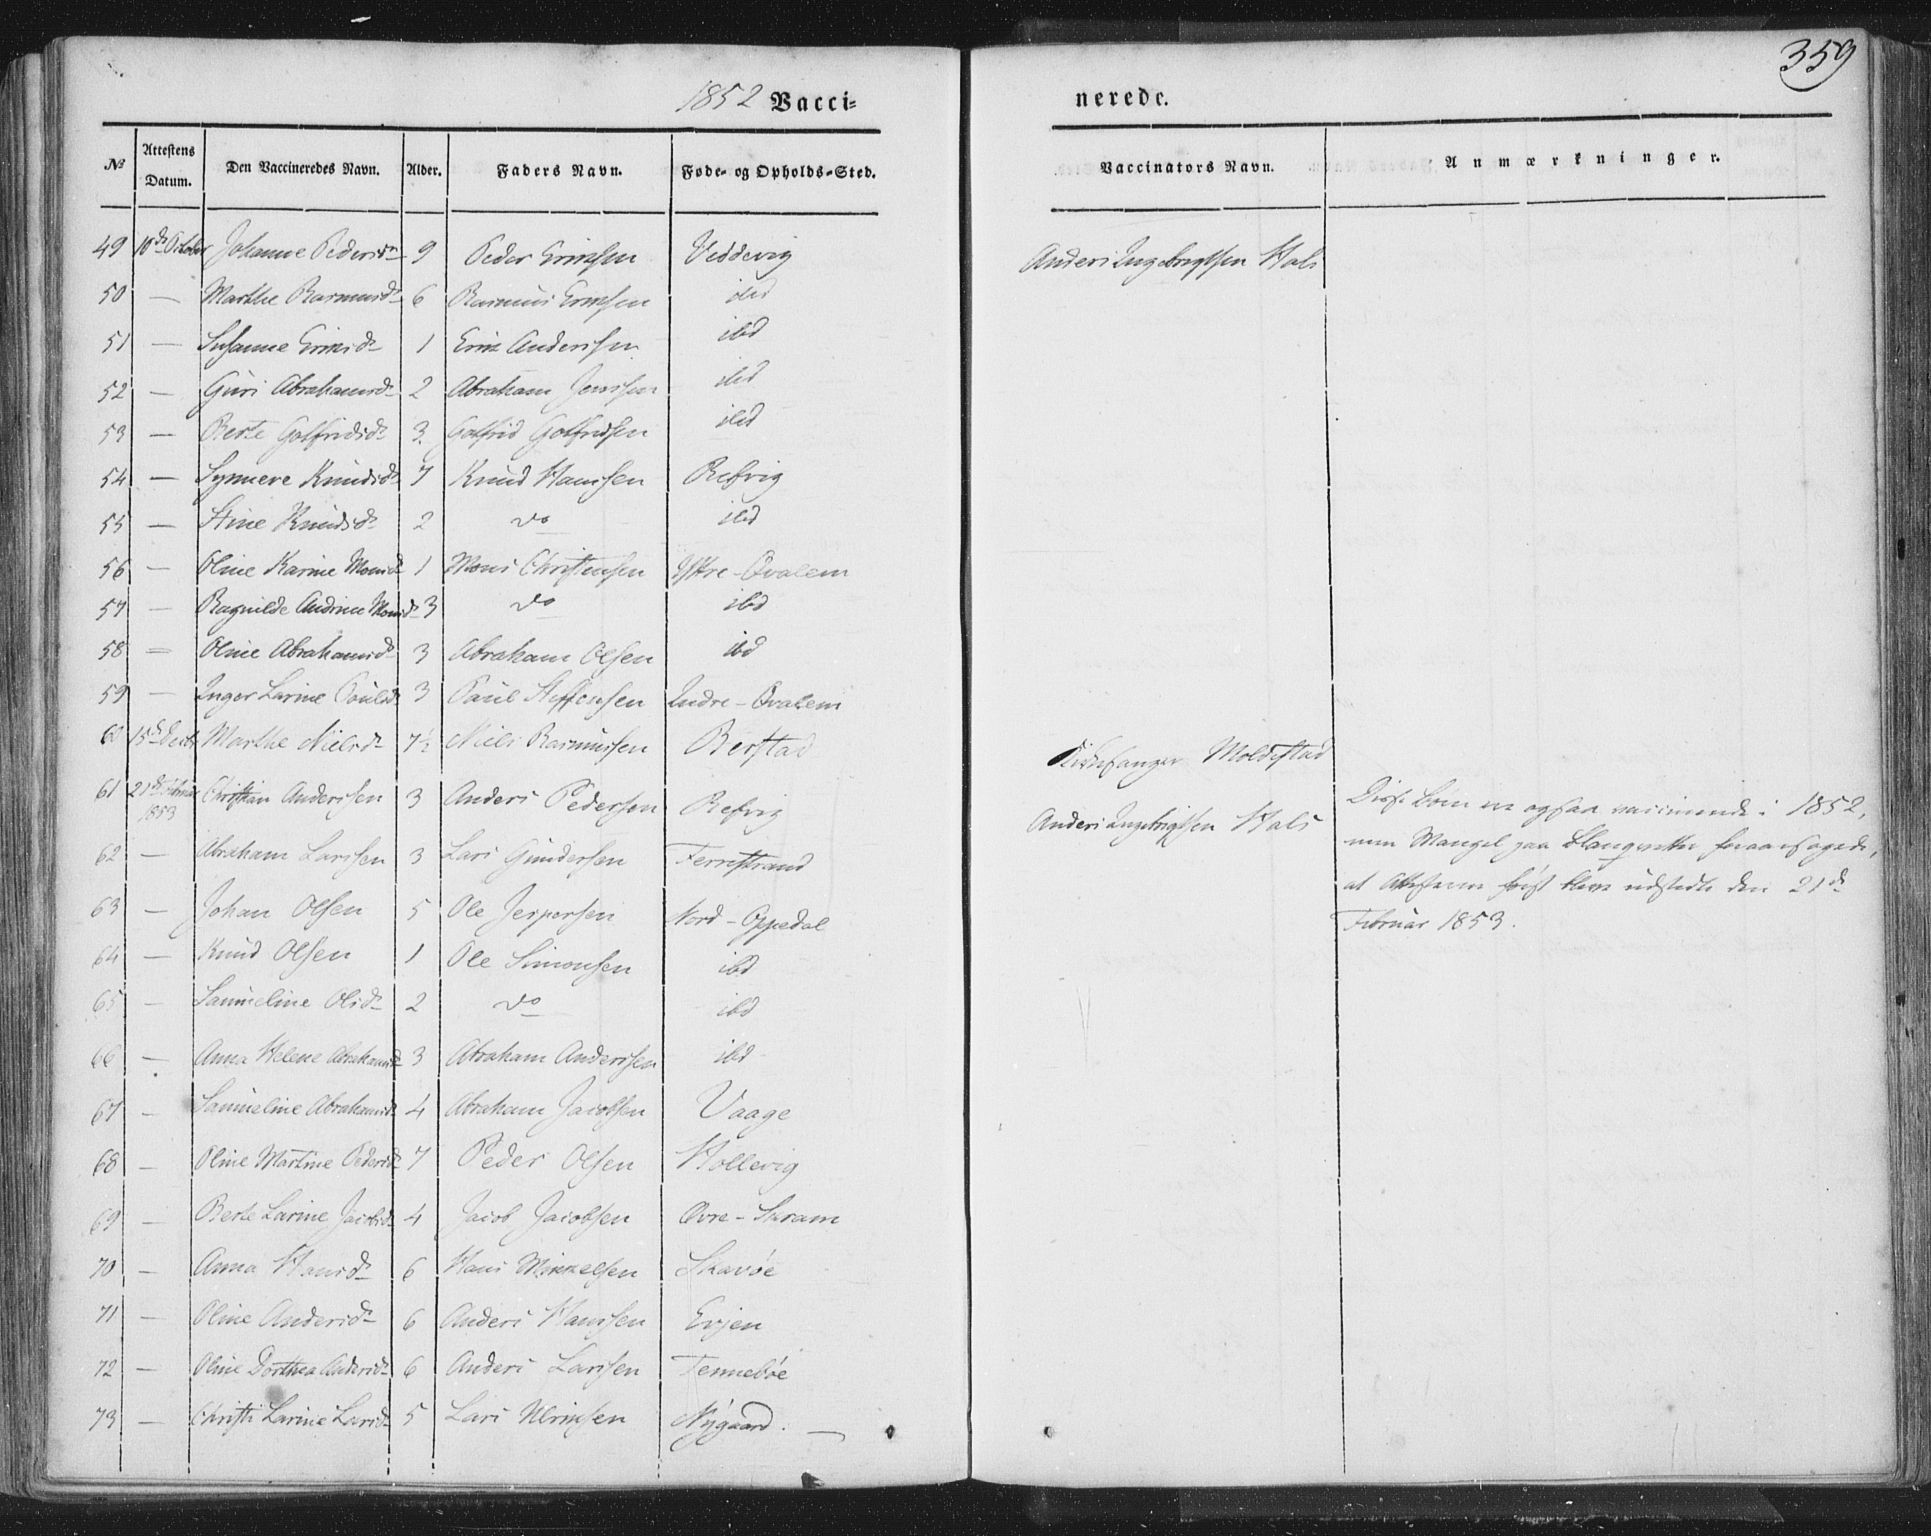 359
1852 Vacci-
nerede.
№ Attestens Datum. Den Vaccineredes Navn. Alder. Faders Navn. Føde- og Opholds-Sted. Vaccinators Navn. Anmærkninger.
49 10de October Johanne Pedersd. 9 Peder Erik­sen Veddevig Anders Ingebrigtsen Hals
50 — Marthe Rasmusd. 6 Rasmus Eriksen ibd
51 — Susanne Eriksd. 1 Erik Anderssen ibd
52 — Guri Abrahamsd. 2 Abraham Jenssen ibd
53 — Berte Golfridsd. 3 Golfrid Golfridsen ibd
54 — Synneve Knudsd. 7 Knud Hanssen Refvig
55 — Stine Knudsd. 2 do ibd
56 — Oline Karine Monsd. 1 Mons Christensen Yttre-Qvalem
57 — Ragnilde Andrine Monsd. 3 do ibd
58 — Oline Abrahamsd. 3 Abraham Olsen ibd
59 — Inger Larine Paulsd. 3 Paul Steffensen Indre-Qvalem
60 15de Decbr Marthe Nielsd. 7½ Niels Rasmussen Berstad Kirkesanger Moldestad
61 21de Februar 1853 Christian Anderssen 3 Anders Pedersen Refvig Anders Ingebrigtsen Hals
Disse Børn ere ogsaa vaccinerede i 1852,
men Mangel paa Blanqvetter foraarsagede,
at Attesterne først bleve udstedte den 21de
Februar 1853.
62 — Abraham Larssen 3 Lars Gundersen Ferrestrand
63 — Johan Olsen 5 Ole Jespersen Nord-Oppedal
64 — Knud Olsen 1 Ole Simonsen ibd
65 — Samueline Olsd. 2 do ibd
66 — Anna Helene Abrahamsd. 3 Abraham Anderssen ibd
67 — Samueline Abrahamsd. 4 Abraham Jacobsen Vaage
68 — Oline Martine Pedersd. 7 Peder Olsen Hollevig
69 — Berte Larine Jacobsd. 4 Jacob Jacobsen Øvre-Skram
70 — Anna Hansd. 6 Hans Mikkelsen Skavøe
71 — Oline Andersd. 6 Anders Hanssen Evjen
72 — Oline Dorthea Andersd. 6 Anders Larssen Tennebøe
73 — Christi Larine Larsd. 5 Lars Ulriksen Nygaard.